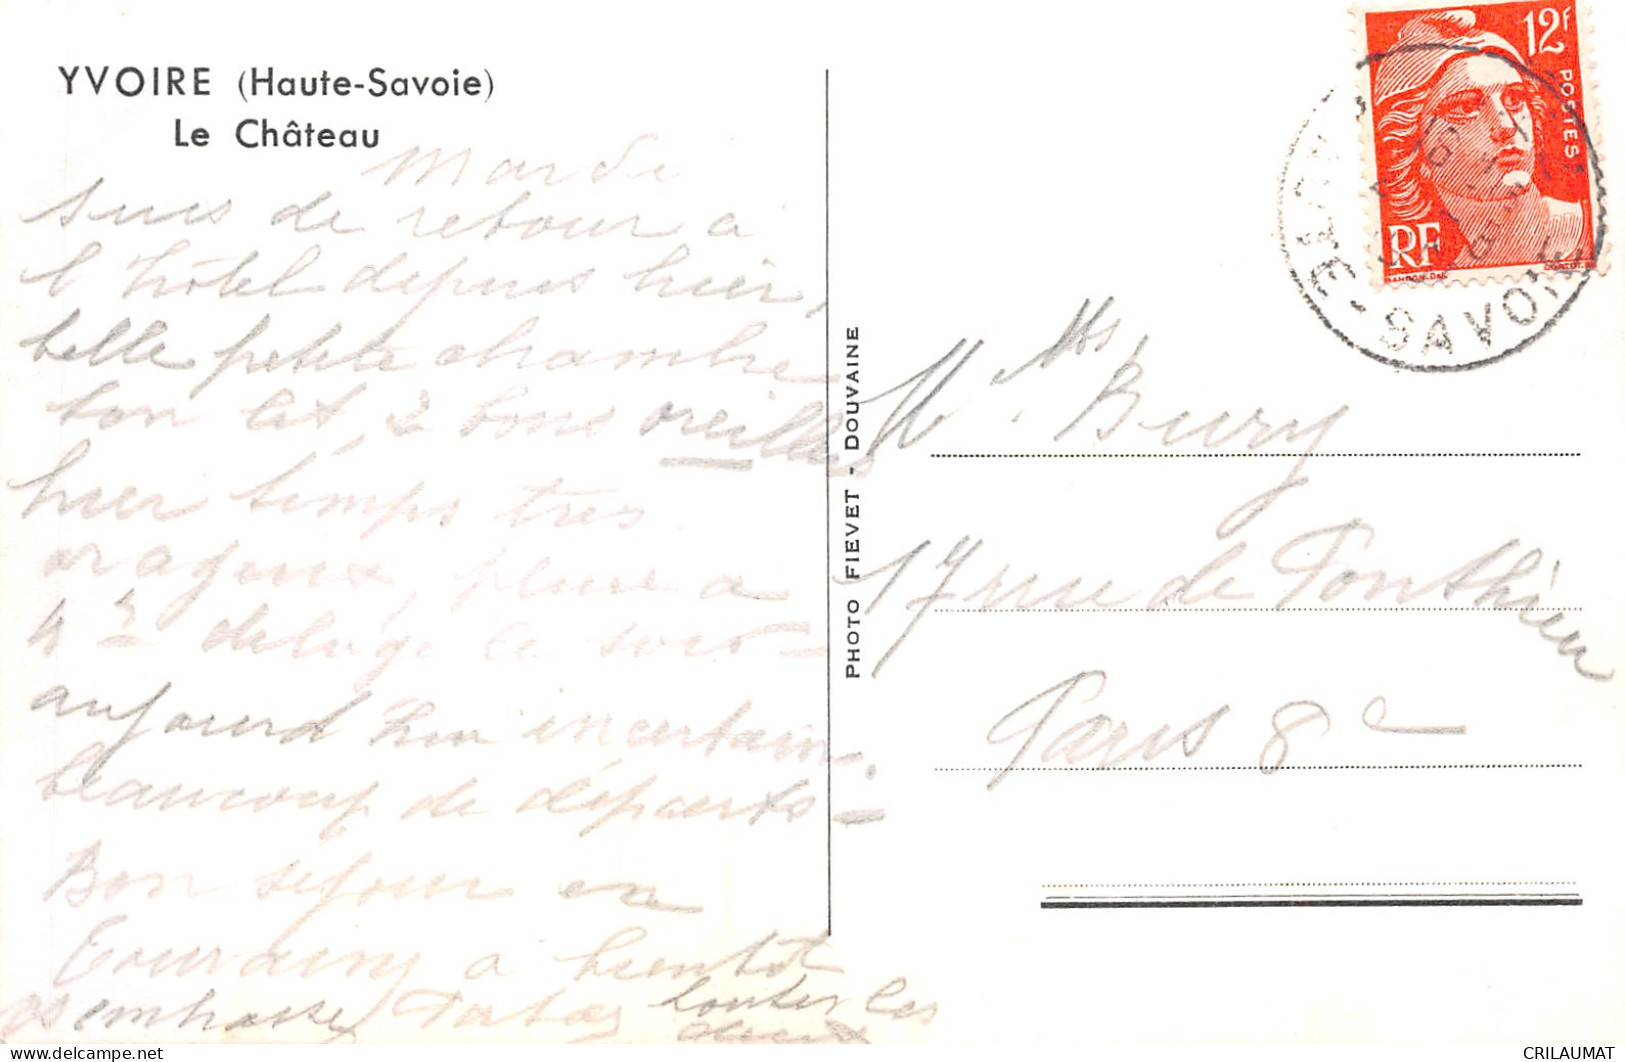 YVOIRE (Haute-Savoie)
Le Château
Mardi
suis de retour à
l'hôtel depuis hier,
belle petite chambre
bon lit, 2 bons oreillers
hier temps très
orageux, pluie a
4h déluge le soir -
aujourd'hui incertain.
beaucoup de départs -
Bon séjour en
Touraine a bientôt
embrasse toutes les
deux
PHOTO FIEVET - DOUVAINE
12F
POSTES
RF
GANDON.DEL
E-SAVOIE
Mts
M. Bury
17 rue de Ponthieu
Paris 8e
CRILAUMAT